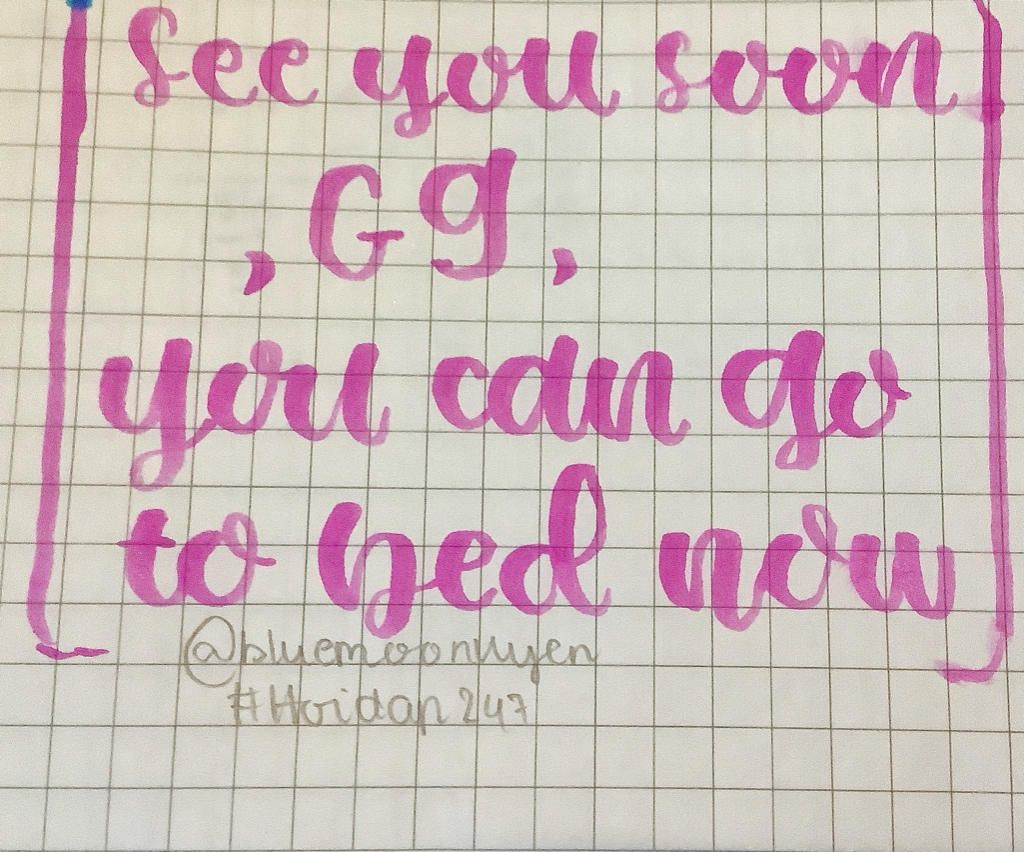 See you soon
, G9,
you can go
to bed now
@bluemoonuyen
#Hoidap247